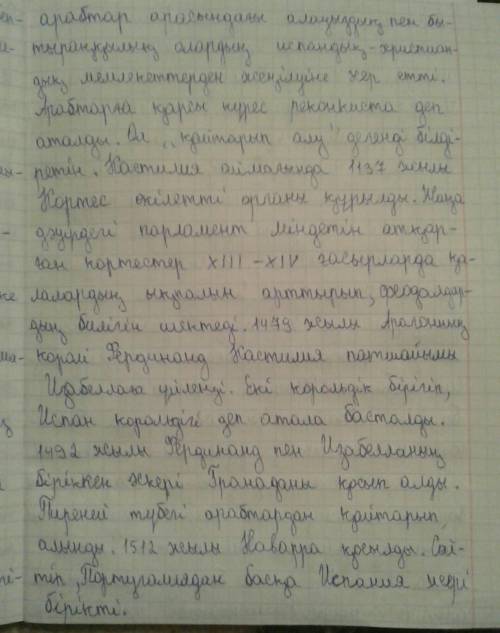 арабтар арасындағы алауыздық пен бы-
тыраңқылық олардың испандық-христиан-
дық мемлекеттерден жеңілуіне әкер етті.
Арабтарға қарсы күрес реконкиста деп
аталды. Ол „қайтарып алу" дегенді білді-
ретін. Кастилия аймағында 1137 жылы
Кортес өкілетті органы құрылды. Жаңа
дәуірдегі парламент міндетін атқар-
ған кортестер XIII-XIV ғасырларда қа-
лалардың ықпалын арттырып, феодалдар-
дың билігін шектеді. 1479 жылы Арагонның
королі Фердинанд Кастилия патшайымы
Изабеллаға үйленді. Екі корольдік бірігіп,
Испан корольдігі деп атала басталды.
1492 жылы Фердинанд пен Изабелланың
біріккен әскері Гранаданы қосып алды.
Пиреней түбегі арабтардан қайтарып
алынды. 1512 жылы Наварра қосылды. Сөй-
тіп, Португалиядан басқа Испания жері
бірікті.